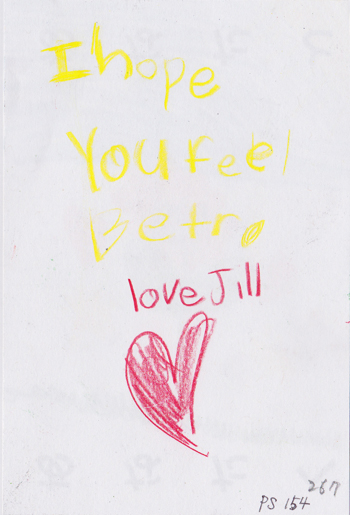 I hope
You Feel
Betr.
love Jill
267
PS 154